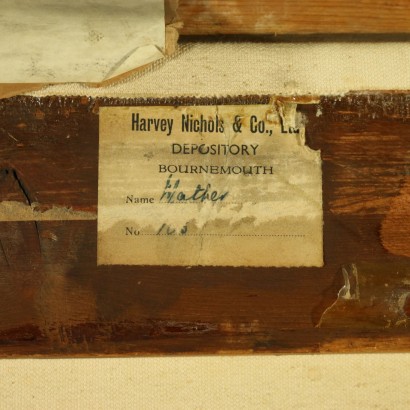 Harvey Nichols & Co., Ltd
DEPOSITORY
BOURNEMOUTH
Name Mather
No